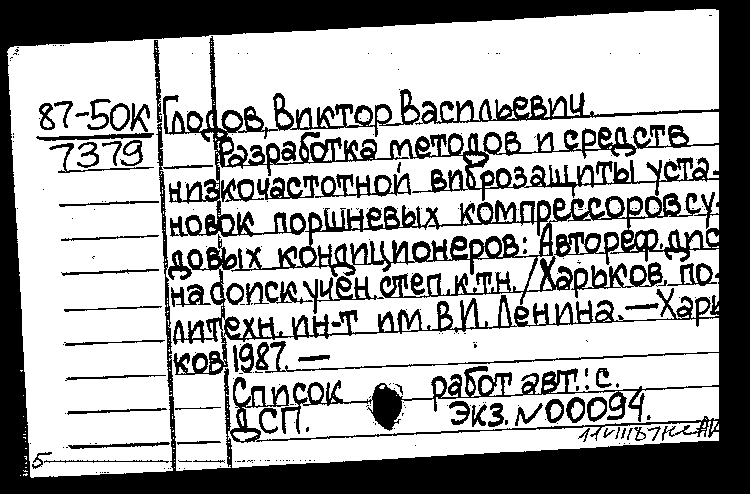 87-50К Глодов, Виктор Васильевич.
7379 Разработка методов и средств
низкочастотной виброзащиты уста-
новок поршневых компрессоров су-
довых кондиционеров: Автореф. дис
на соиск. учён. степ. к.т.н. /Харьков. по-
литехн. ин-т им. В.И. Ленина. — Харь
ков 1987. —
Список работ авт.: с.
ДСП. Экз. №00094.
5